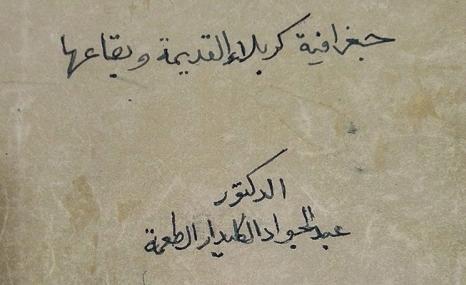 جغرافية كربلاء القديمة وبقاعها
الدكتور
عبد الجواد الكليدار ال طعمة